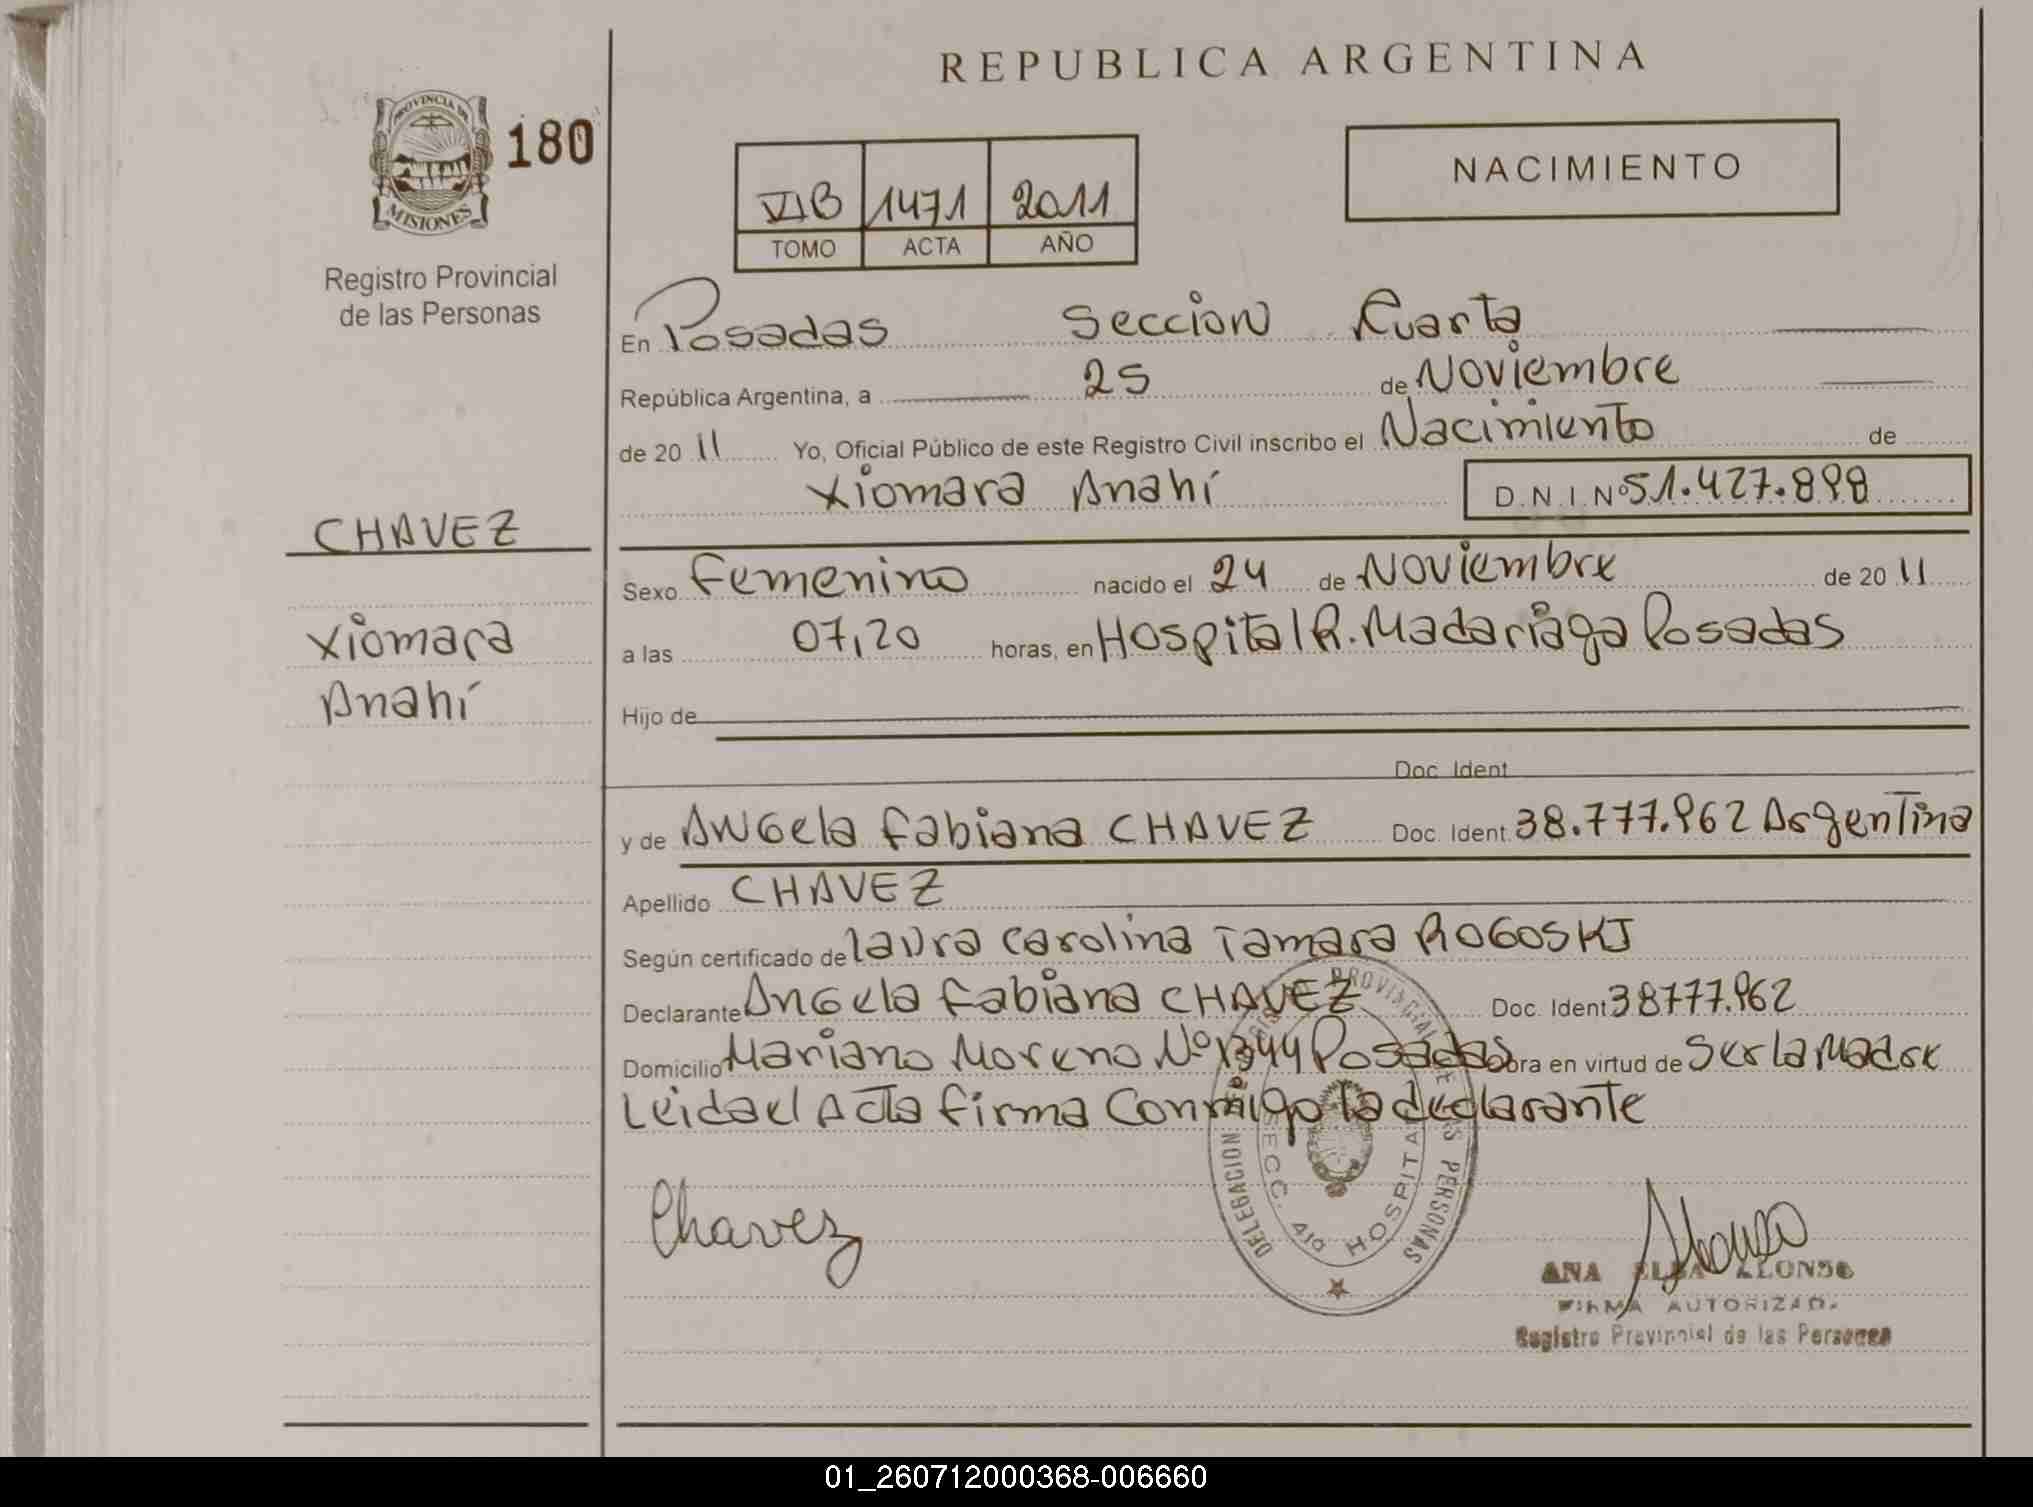 REPUBLICA ARGENTINA
PROVINCIA DE
MISIONES
180
Registro Provincial
de las Personas
NACIMIENTO
VIB 1471 2011
TOMO ACTA AÑO
En Posadas Sección Cuarta
República Argentina, a 25 de Noviembre
de 20 11 Yo, Oficial Público de este Registro Civil inscribo el Nacimiento de
Xiomara Anahí D.N.I. Nº 51.427.898
CHAVEZ
Xiomara
Anahí
Sexo Femenino nacido el 24 de Noviembre de 20 11
a las 07,20 horas, en Hospital R. Madariaga Posadas
Hijo de
Doc. Ident
y de Angela Fabiana CHAVEZ Doc. Ident. 38.777.962 Argentina
Apellido CHAVEZ
Según certificado de Laura Carolina Tamara ROGOSKI
Declarante Angela Fabiana CHAVEZ Doc. Ident 38777.962
Domicilio Mariano Moreno Nº 1344 Posadas obra en virtud de Ser la Madre
Leida el Acta firma Conmigo la declarante
Chavez
DELEGACION PROVINCIAL DE LAS PERSONAS
SECC. 4ta HOSPITAL
ANA ELSA ALONSO
FIRMA AUTORIZADA
Registro Provincial de las Personas
01_260712000368-006660